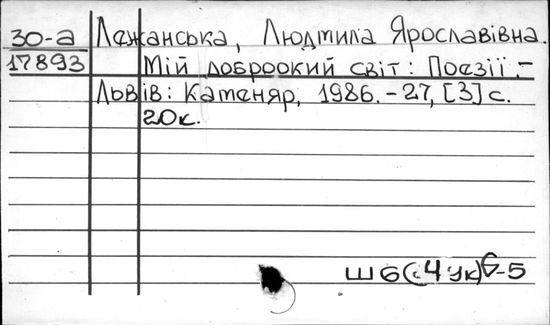 30-а Лежанська, Людмила Ярославівна.
17893 Мій доброокий світ: Поезії.-
Львів: Каменяр, 1986. - 27, [3] с.
20к.
Ш6(4Ук)6-5